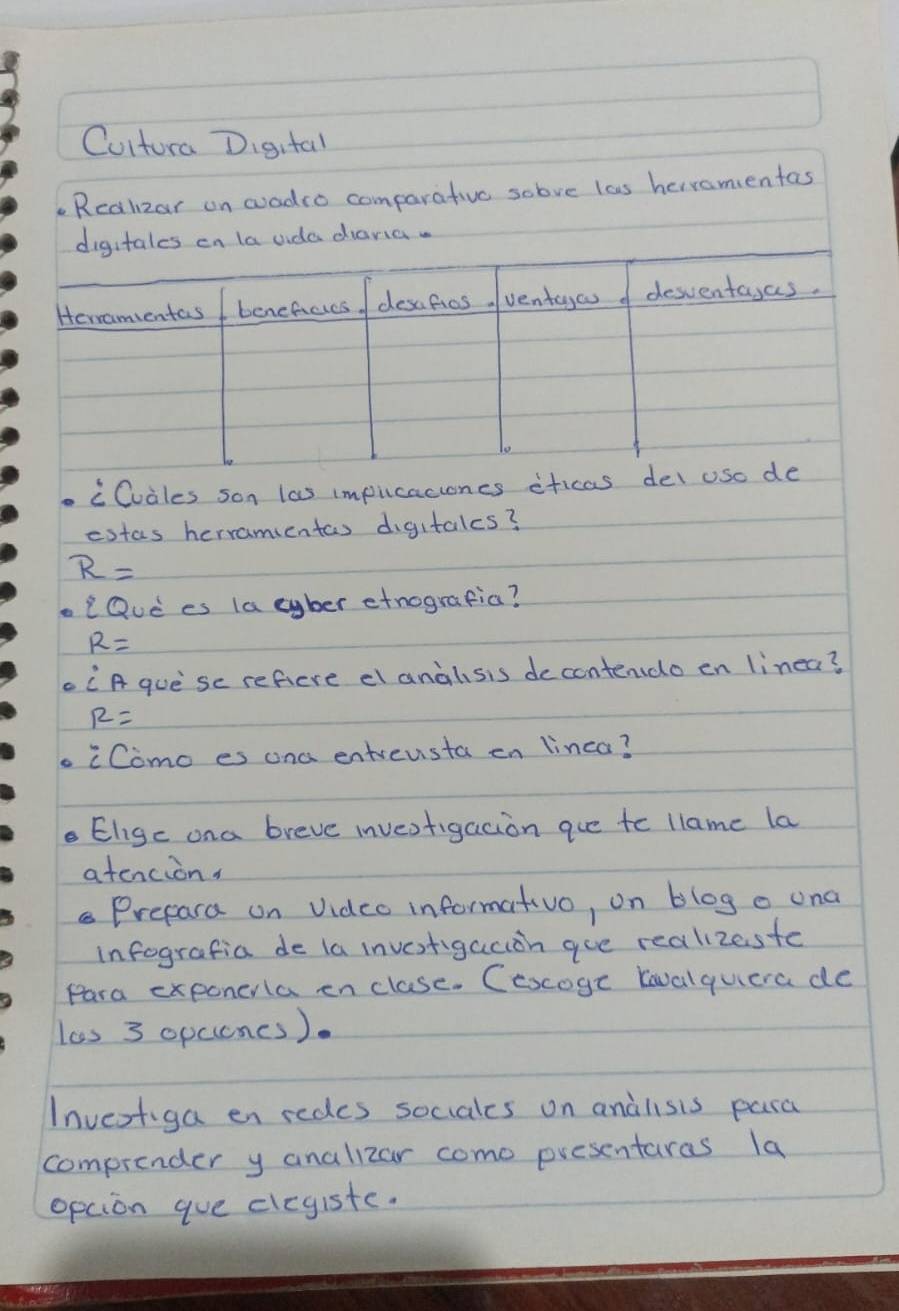 Cultura Digital
• Realizar un cuadro comparativo sobre las herramientas
digitales en la vida diaria.
Herramientas beneficios. desafios. ventajas desventajas.
• ¿Cuàles son las implicaciones èticas del uso de
estas herramientas digitales?
R=
• ¿Què es la cyber etnografia?
R=
• ¿A què se refiere el anàlisis de contenido en linea?
R=
• ¿Còmo es una entrevista en linea?
• Elige una breve investigaciòn que te llame la
atenciòn.
• Prepara un video informativo, un blog o una
infografia de la investigaciòn que realizaste
para exponerla en clase. (escoge cualquiera de
las 3 opciones).
Investiga en redes sociales un anàlisis para
comprender y analizar como presentaras la
opciòn que elegiste.